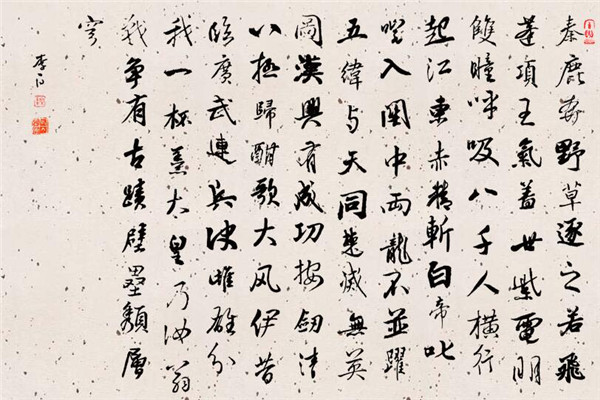 秦鹿奔野草逐之若飛
蓬項王氣蓋世紫電明
雙瞳呼吸八千人橫行
起江東赤精斬白帝叱
咤入關中兩龍不並躍
五緯与天同楚滅無英
圖漢興有成功按劍清
八極歸酣歌大風伊昔
臨廣武連兵決雌雄分
我一杯羹大皇乃汝翁
戰爭有古蹟壁壘頹層
穹
李白